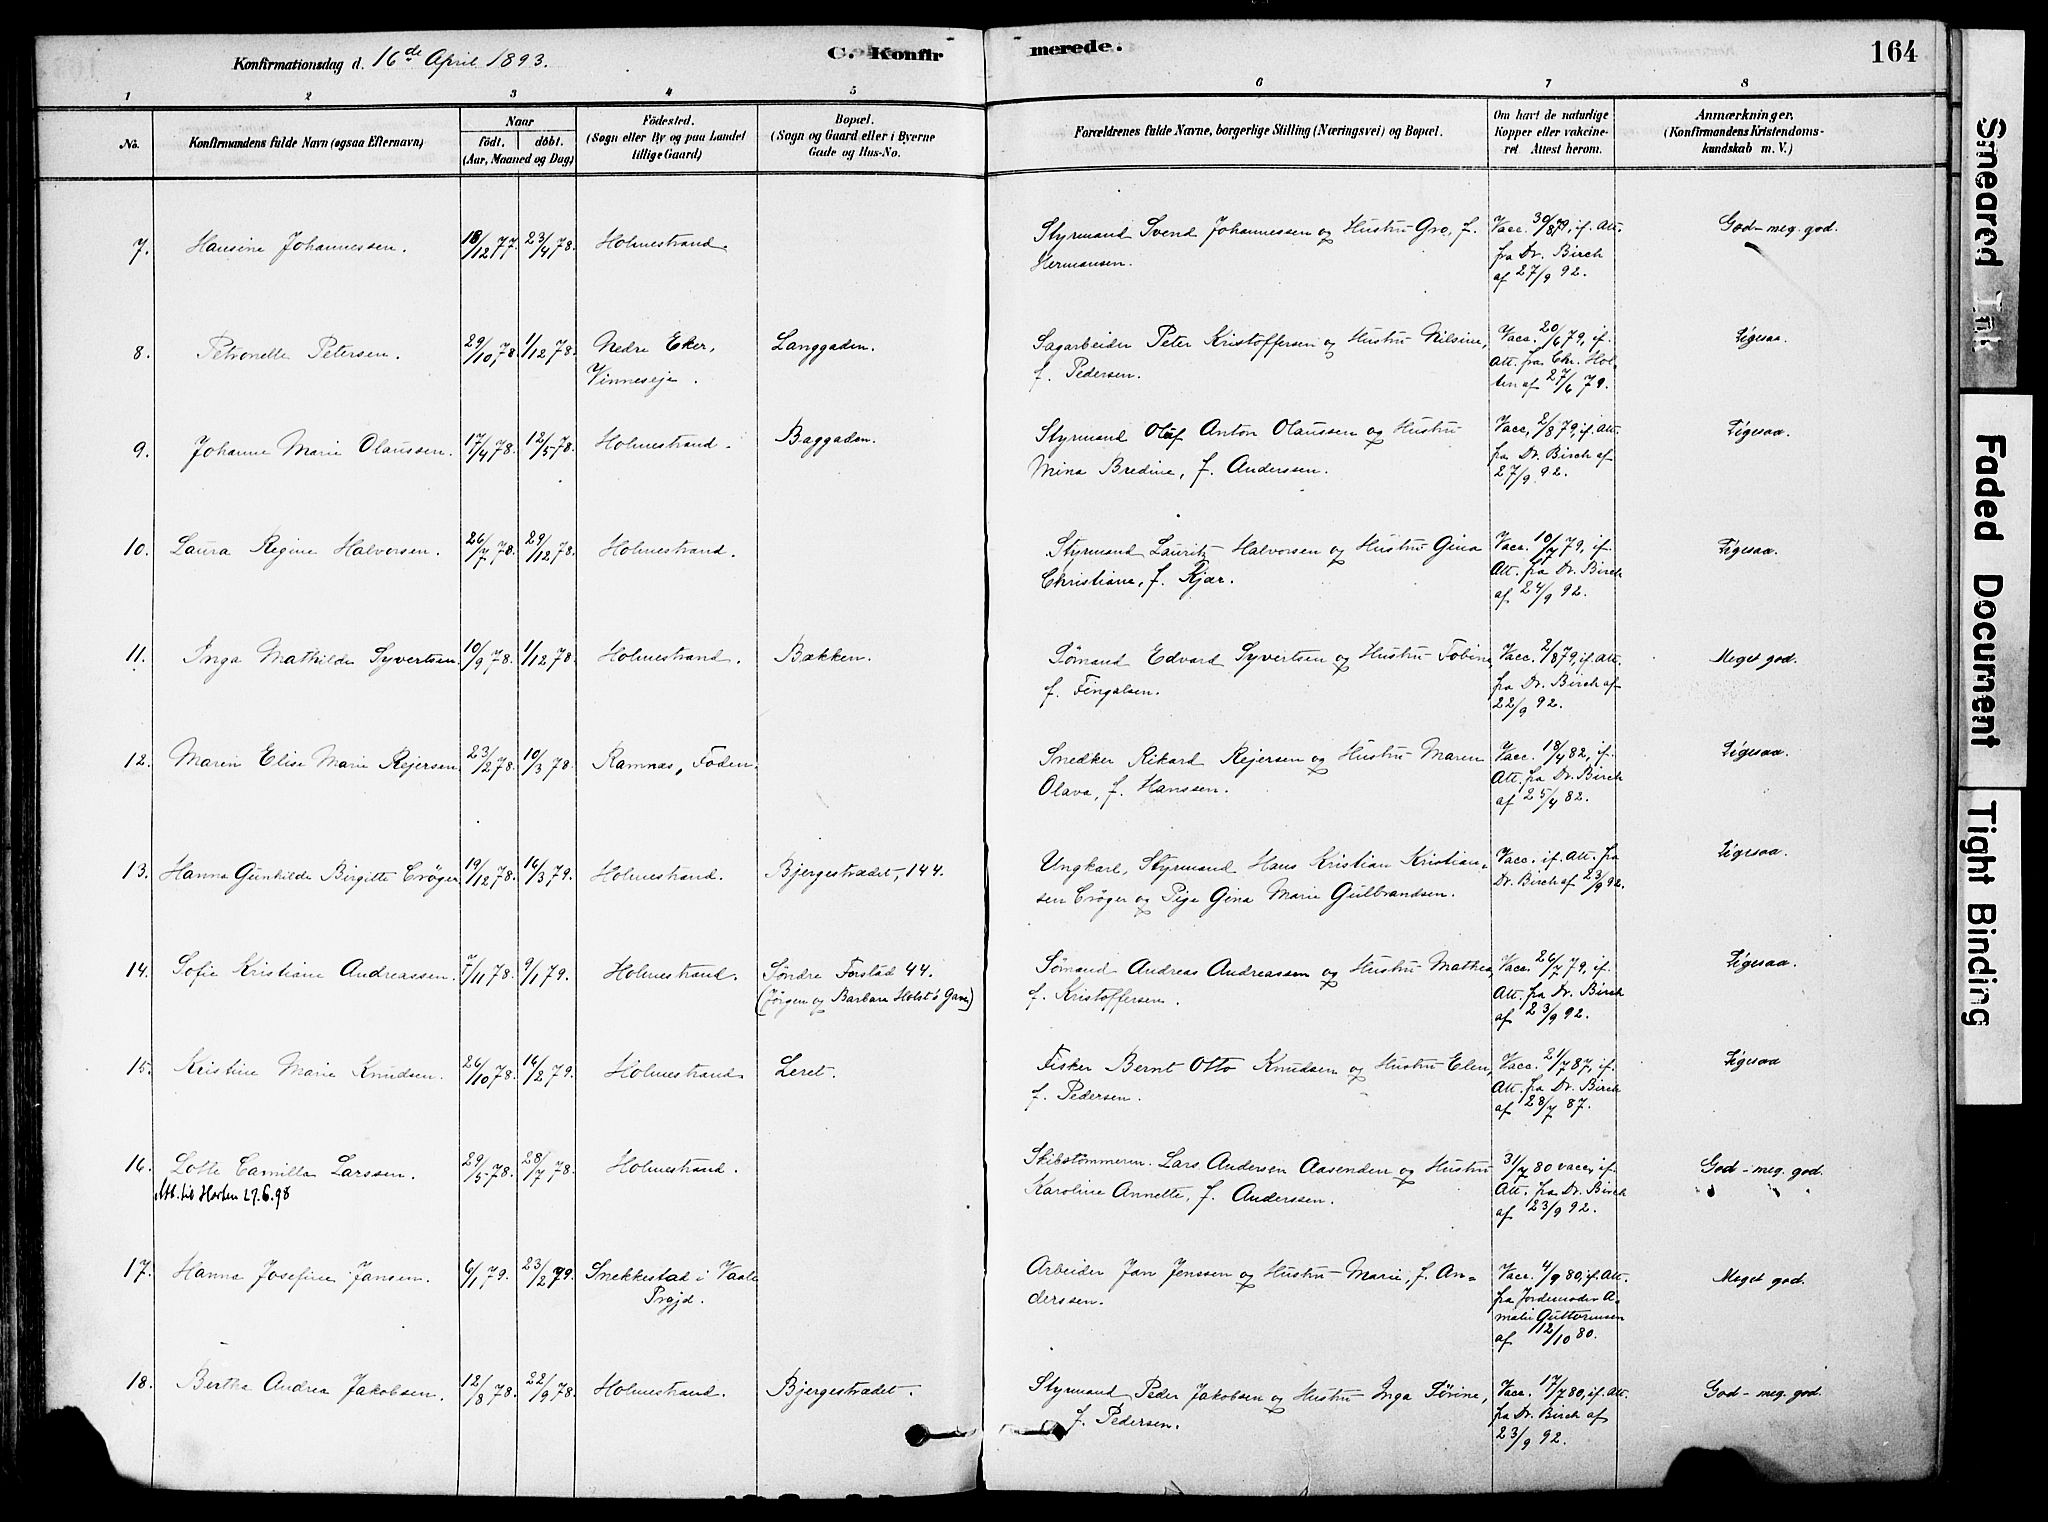 Konfirmationsdag d. 16de April 1893.
C. Konfir
merede.
164
1 2 3 4 5 6 7 8
No.
Konfirmandens fulde Navn (ogsaa Efternavn)
Naar
födt. döbt.
(Aar, Maaned og Dag)
Födested.
(Sogn eller By og paa Landet
tillige Gaard)
Bopæl.
(Sogn og Gaard eller i Byerne
Gade og Hus-No.
Forældrenes fulde Navne, borgerlige Stilling (Næringsvei) og Bopæl.
Om havt de naturlige
Kopper eller vakcine-
ret. Attest herom.
Anmærkninger.
(Konfirmandens Kristendoms-
kundskab m. V.)
7. Hansine Johannessen. 18/12 77 23/4 78. Holmestrand.
Styrmand Svend Johannessen og Hustru Gro, f.
Hermansen.
Vacc. 30/8 79, if. Att.
fra Dr. Birch
af 27/9 92.
God - meg. god.
8. Petronelle Petersen. 29/10 78. 1/12 78. Nedre Eker,
Vinneseje.
Langgaden.
Sagarbeider Peter Kristoffersen og Hustru Nilsine,
f. Pedersen.
Vacc. 20/6 79, if.
Att. fra Chr. Hol-
ten af 27/6 79.
Ligesaa.
9. Johanne Marie Olaussen. 17/4 78. 12/5 78. Holmestrand. Baggaden.
Styrmand Olaf Anton Olaussen og Hustru
Mina Bredine, f. Anderssen.
Vacc. 2/8 79, if. Att.
fra Dr. Birch af
27/9 92.
Ligesaa.
10. Laura Regine Halvorsen. 26/7 78. 29/12 78. Holmestrand.
Styrmand Lauritz Halvorsen og Hustru Gina
Christiane, f. Kjær.
Vacc. 10/7 79, if.
Att. fra Dr. Birch
af 24/9 92.
Ligesaa.
11. Inga Mathilde Syvertsen. 10/9 78. 1/12 78. Holmestrand. Bækken.
Sømand Edvard Syvertsen og Hustru Tobine,
f. Fingalsen.
Vacc. 2/8 79, if. Att.
fra Dr. Birch af
22/9 92.
Meget god.
12. Maren Elise Marie Rejersen. 23/2 78. 10/3 78. Ramnæs, Foden.
Snedker Rikard Rejersen og Hustru Maren
Olava, f. Hanssen.
Vacc. 18/4 82, if.
Att. fra Dr. Birch
af 25/4 82.
Ligesaa.
13. Hanna Gunhilde Birgitte Crøger. 19/12 78. 16/3 79. Holmestrand. Bjergestrædet, 144.
Ungkarl, Styrmand Hans Kristian Kristian-
sen Crøger og Pige Gina Marie Gulbrandsen.
Vacc. if. Att. fra
Dr. Birch af 23/9 92.
Ligesaa.
14. Sofie Kristiane Andreassen. 7/11 78. 9/1 79. Holmestrand. Søndre Forstad 44.
(Jørgen og Barbara Holst's Gave)
Sømand Andreas Andreassen og Hustru Mathea,
f. Kristoffersen.
Vacc. 26/7 79, if.
Att. fra Dr. Birch
af 23/9 92.
Ligesaa.
15. Kristine Marie Knudsen. 26/10 78. 16/2 79. Holmestrand. Leret.
Fisker Bernt Otto Knudsen og Hustru Elen,
f. Pedersen.
Vacc. 21/7 87, if.
Att. fra Dr. Birch
af 28/7 87.
Ligesaa
16. Lotte Camilla Larssen. 29/5 78. 28/7 78. Holmestrand.
Att. til Horten 27.6.98
Skibstømmerm. Lars Andersen Aasenden og Hustru
Karoline Annette, f. Anderssen.
31/7 80 vacc. if.
Att. fra Dr. Birch
af 23/9 92.
God - meg. god.
17. Hanna Josefine Jansen. 6/1 79. 23/2 79. Snekkestad i Vaale
Prgjd.
Arbeider Jan Jenssen og Hustru Marie, f. An-
derssen.
Vacc. 4/9 80, if. Att.
fra Jordemoder A-
malie Guttormsen
af 12/10 80.
Meget god.
18. Bertha Andrea Jakobsen. 12/8 78. 22/9 78. Holmestrand. Bjergestrædet.
Styrmand Peder Jakobsen og Hustru Inga Sørine,
f. Pedersen.
Vacc. 17/7 80, if. Att.
fra Dr. Birch af
23/9 92.
God - meg. god.
Smeared Ink
Faded Document
Tight Binding